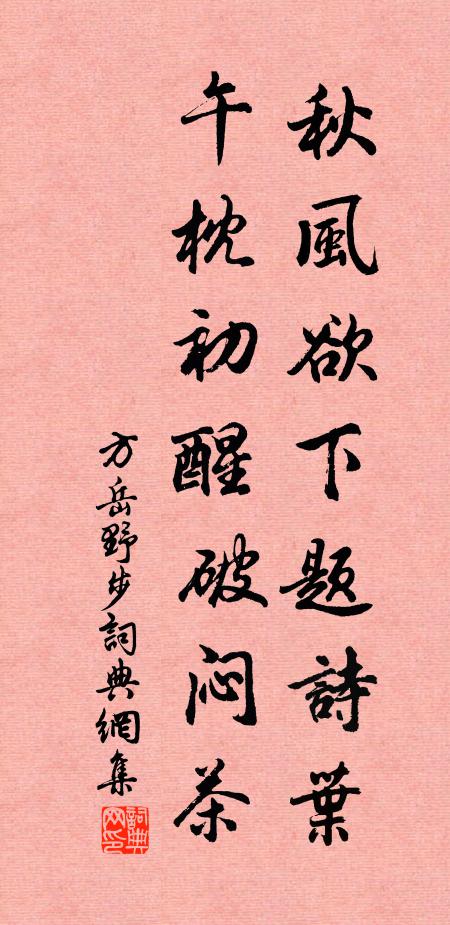 秋風欲下題詩葉
午枕初醒破闷茶
方岳野步詞典網集
詞典网印